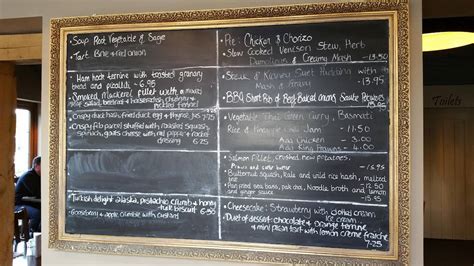 Soup Root Vegetable & Sage
Tart Brie & red onion
Ham hock terrine with toasted granary
bread and piccalilli - 6.50
Smoked Mackerel fillet with
beetroot & horseradish chutney
Crispy duck hash, fried duck egg & thyme jus 7.25
Crispy filo parcel stuffed with roasted squash,
spinach, goats cheese with mixed
6.50
Turkish delight, pistachio crumb & honey
tuile biscuit 6.50
Gooseberry & apple crumble with custard
Pie: Chicken & Chorizo
Slow Cooked Venison Stew, Herb
Dumpling & Creamy Mash -13.50
Steak & Kidney Suet Pudding with
Mash & Gravy 13.95
BBQ Short Rib of Beef, Baked onions, Saute Potatoes
15.95
Vegetable Thai Green Curry, Basmati
Rice & Jam - 11.50
Add Chicken - 3.00
Add King Prawns - 4.00
Salmon fillet, crushed new potatoes,
Prawn and saffron
Butternut squash, kale and wild salad - 12.50
Pan fried sea bass, pak choi, Noodle broth and
ginger - 15.95
Cheesecake: Strawberry with
ice cream
Duet of dessert - chocolate & orange terrine
& mini pecan tart with lemon creme fraiche
7.25
Toilets